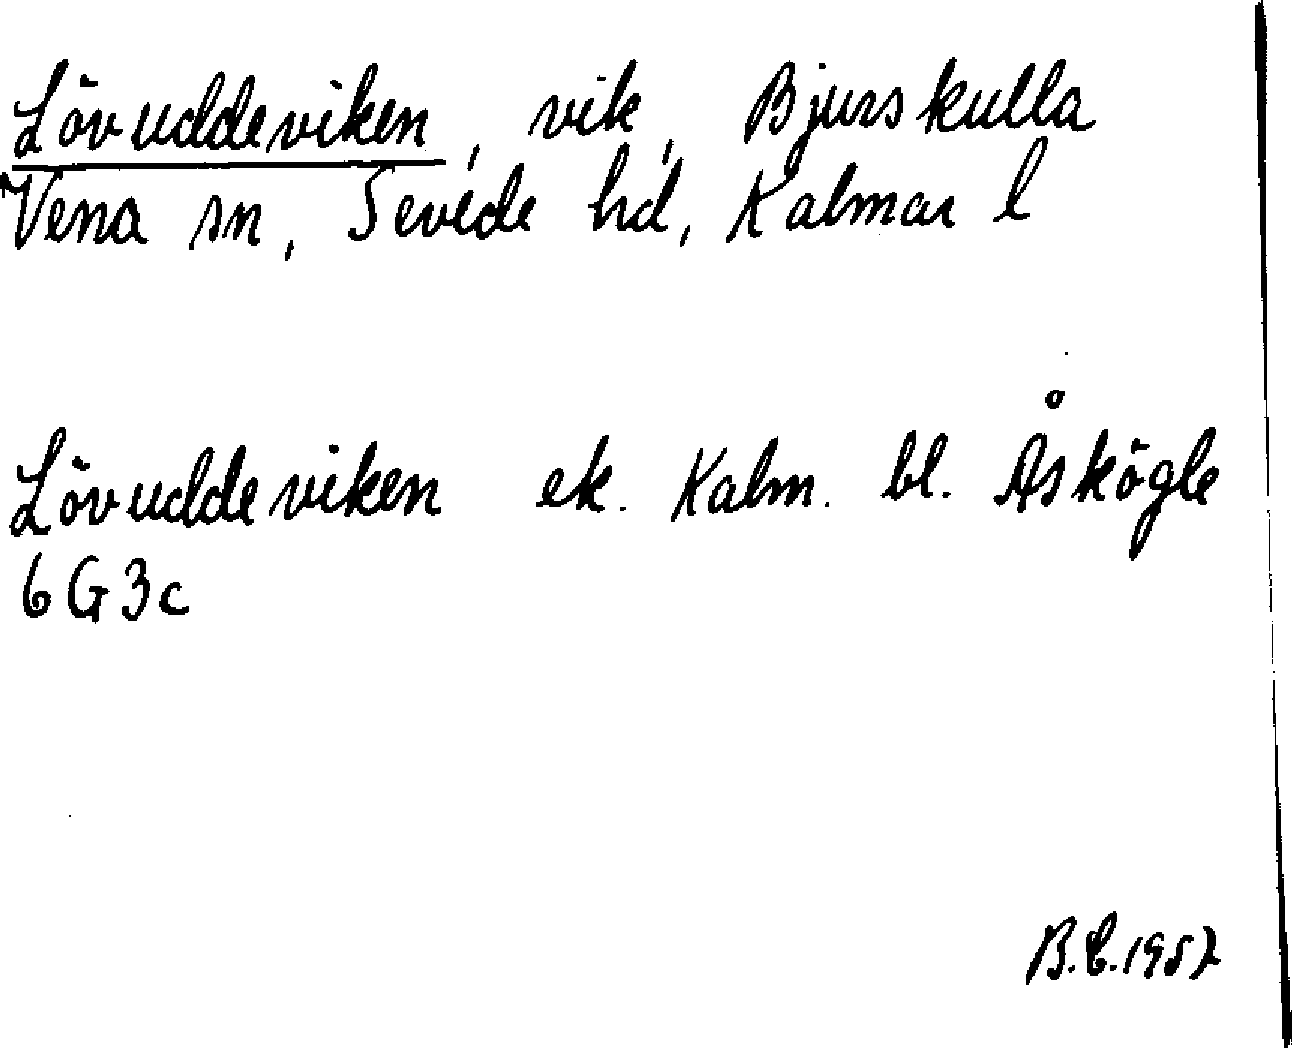 Lövuddeviken, vik, Bjurskulla
Vena sn, Sevede hd, Kalmar l
Lövuddeviken ek. Kalm. bl. Åskögle
6G3c
B.E.1957